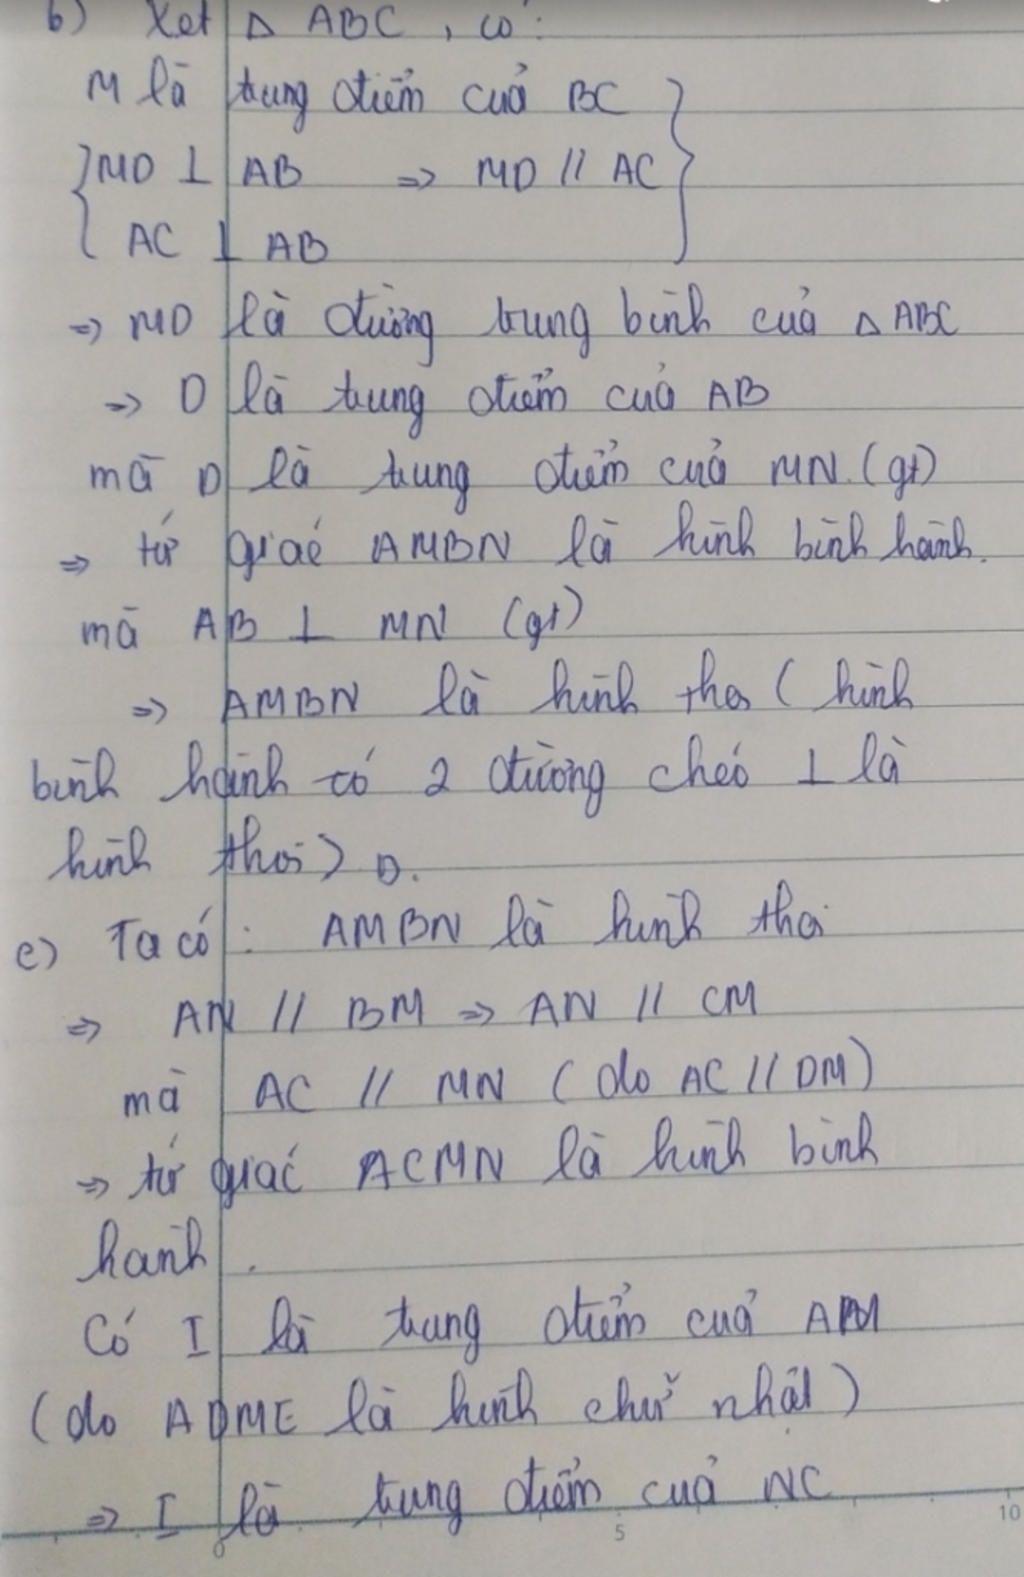 b) Xét Δ ABC, có:
M là trung điểm của BC
MD ⊥ AB => MD // AC
AC ⊥ AB
=> MD là đường trung bình của Δ ABC
=> D là trung điểm của AB
mà D là trung điểm của MN (gt)
=> tứ giác AMBN là hình bình hành.
mà AB ⊥ MN (gt)
=> AMBN là hình thoi (hình
bình hành có 2 đường chéo ⊥ là
hình thoi) D.
c) Ta có: AMBN là hình thoi
=> AN // BM => AN // CM
mà AC // MN (do AC // DM)
=> tứ giác ACMN là hình bình
hành.
Có I là trung điểm của AM
(do ADME là hình chữ nhật)
=> I là trung điểm của NC
0 5 10